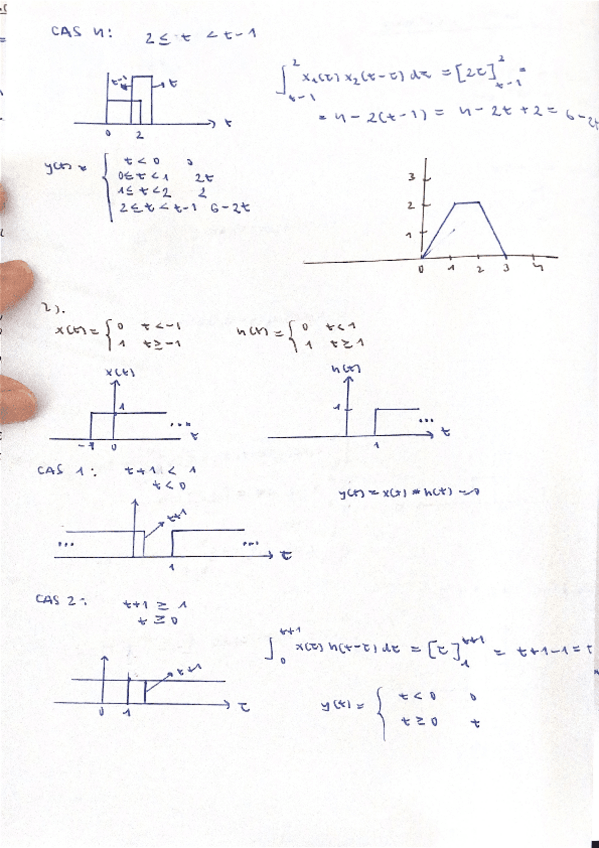 CAS 4: 2 ≤ t < t-1
t-1 t
0 2 t
∫_{t-1}^{2} x₁(τ) x₂(t-τ) dτ = [2τ]_{t-1}^{2} =
= 4 - 2(t-1) = 4 - 2t + 2 = 6-2t
y(t) = { t<0 0
0≤t<1 2t
1≤t<2 2
2≤t<t-1 6-2t
3
2
1
0 1 2 3 4
2).
x(t) = { 0 t<-1
1 t≥-1
h(t) = { 0 t<1
1 t≥1
x(t)
1
...
-1 0 t
h(t)
1
...
1 t
CAS 1: t+1 < 1
t<0
y(t) = x(t) * h(t) = 0
t+1
... ...
1 τ
CAS 2: t+1 ≥ 1
t ≥ 0
∫_{0}^{t+1} x(τ) h(t-τ) dτ = [τ]_{1}^{t+1} = t+1-1 =
t+1
0 1 τ
y(t) = { t<0 0
t≥0 t